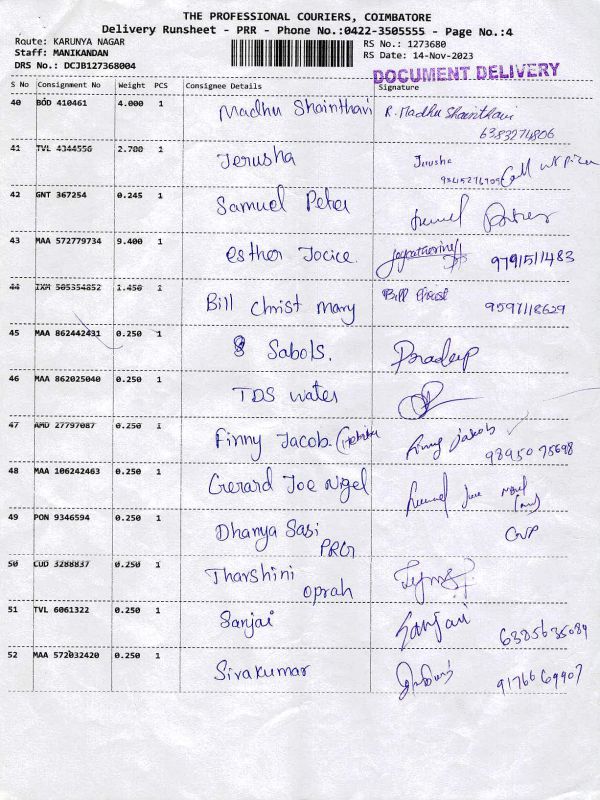 THE PROFESSIONAL COURIERS, COIMBATORE
Delivery Runsheet - PRR - Phone No.:0422-3505555 - Page No.:4
Route: KARUNYA NAGAR
Staff: MANIKANDAN
DRS No.: DCJB127368004
RS No.: 1273680
RS Date: 14-Nov-2023
DOCUMENT DELIVERY
S No Consignment No Weight PCS Consignee Details Signature
40 BOD 410461 4.000 1 Madhu Shainthavi R. Madhu Shainthavi
6383274806
41 TVL 4344556 2.700 1 Jerusha Jerusha
42 GNT 367254 0.245 1 Samuel Peter
43 MAA 572779734 9.400 1 Esther Jocice 9791511483
44 IXM 505354852 1.450 1 Bill Christ Mary Bill Christ
9597118629
45 MAA 862442431 0.250 1 Sabols. Pradeep
46 MAA 862025040 0.250 1 TDS water
47 AMD 27797087 0.250 1 Finny Jacob. Finny Jakob
98950 75698
48 MAA 106242463 0.250 1 Gerard Joe Nigel
49 PON 9346594 0.250 1 Dhanya Sasi
PRG
50 CUD 3288837 0.250 1 Tharshini
oprah
51 TVL 6061322 0.250 1 Sanjai Sanjai
6385635089
52 MAA 572032420 0.250 1 Sivakumar 9176669907